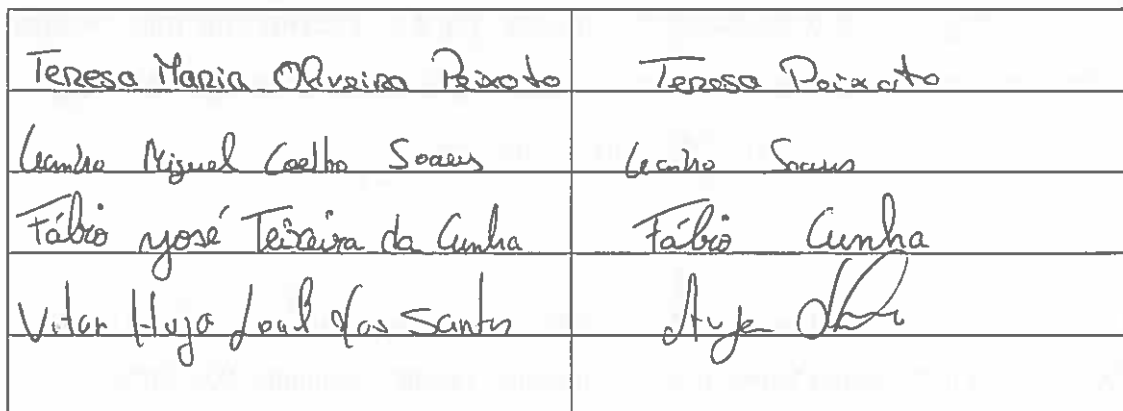 Teresa Maria Oliveira Peixoto Teresa Peixoto
Leandro Miguel Coelho Soares Leandro Soares
Fábio José Teixeira da Cunha Fábio Cunha
Vitor Hugo Leal dos Santos Hugo